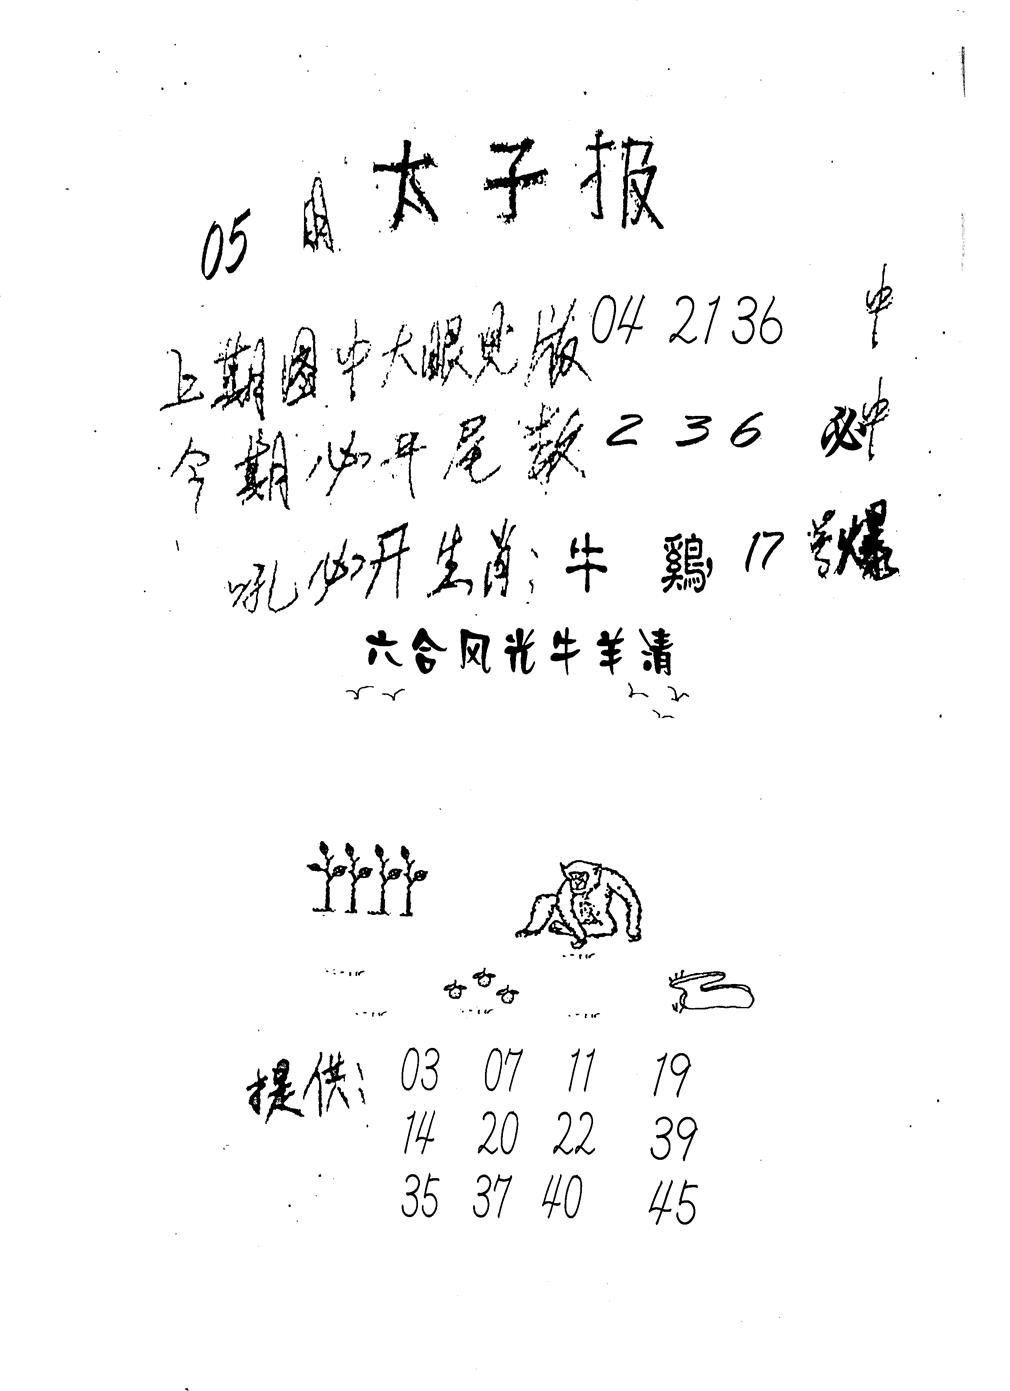 太子报
05 期
上期图中大眼见版 04 21 36 中
今期必开尾数 2 3 6 必中
吼必开生肖: 牛 鷄 17 号爆
六合风光牛羊清
提供: 03 07 11 19
14 20 22 39
35 37 40 45